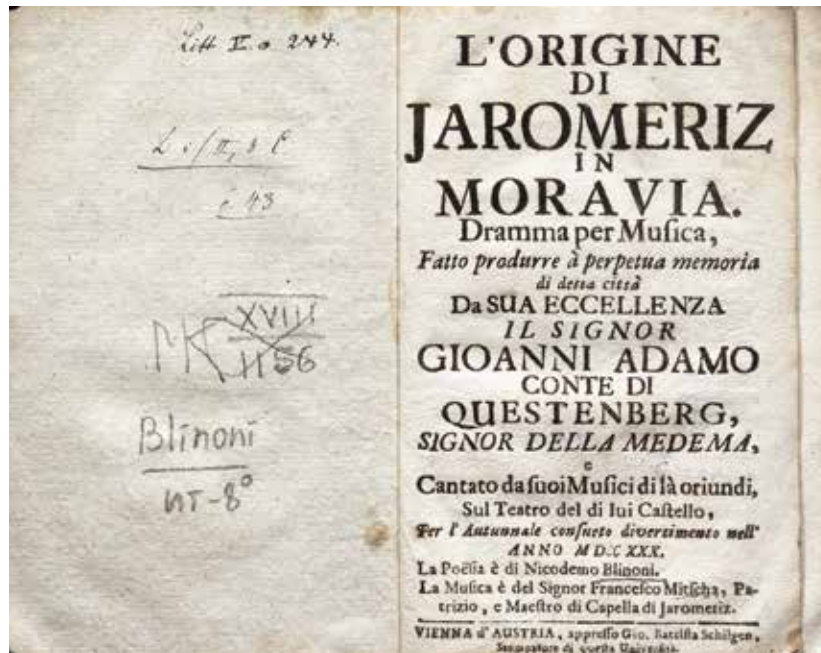 Litt II. o 244.
L i/II, 8 
c 43
MK XVIII
1156
Blinoni
ИТ-8°
L'ORIGINE
DI
JAROMERIZ
IN
MORAVIA.
Dramma per Muſica,
Fatto produrre à perpetua memoria
di detta città
Da SUA ECCELLENZA
IL SIGNOR
GIOANNI ADAMO
CONTE DI
QUESTENBERG,
SIGNOR DELLA MEDEMA,
e
Cantato da ſuoi Muſici di là oriundi,
Sul Teatro del di lui Caſtello,
Per l'Autunnale conſueto divertimento nell'
ANNO MDCCXXX.
La Poëſia è di Nicodemo Blinoni.
La Muſica è del Signor Franceſco Mitſcha, Pa-
trizio, e Maeſtro di Capella di Jaromeriz.
VIENNA d'AUSTRIA, appreſſo Gio. Batiſta Schilgen,
Stampatore di queſta Univerſità.